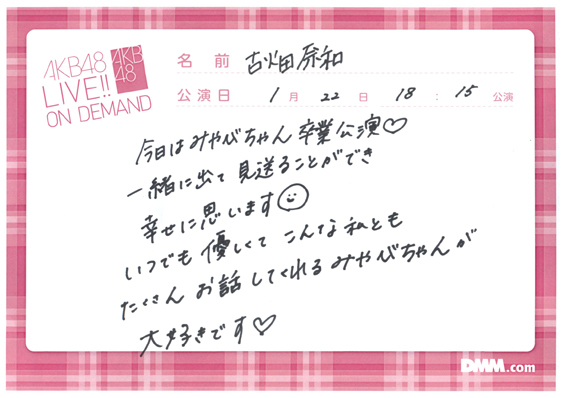 AKB48
LIVE!!
ON DEMAND
AKB
48
名前 古畑奈和
公演日 1月22日 18:15公演
今日はみやびちゃん卒業公演♡
一緒に出て見送ることができ
幸せに思います
いつでも優しくてこんな私とも
たくさんお話してくれるみやびちゃんが
大好きです♡
DMM.com